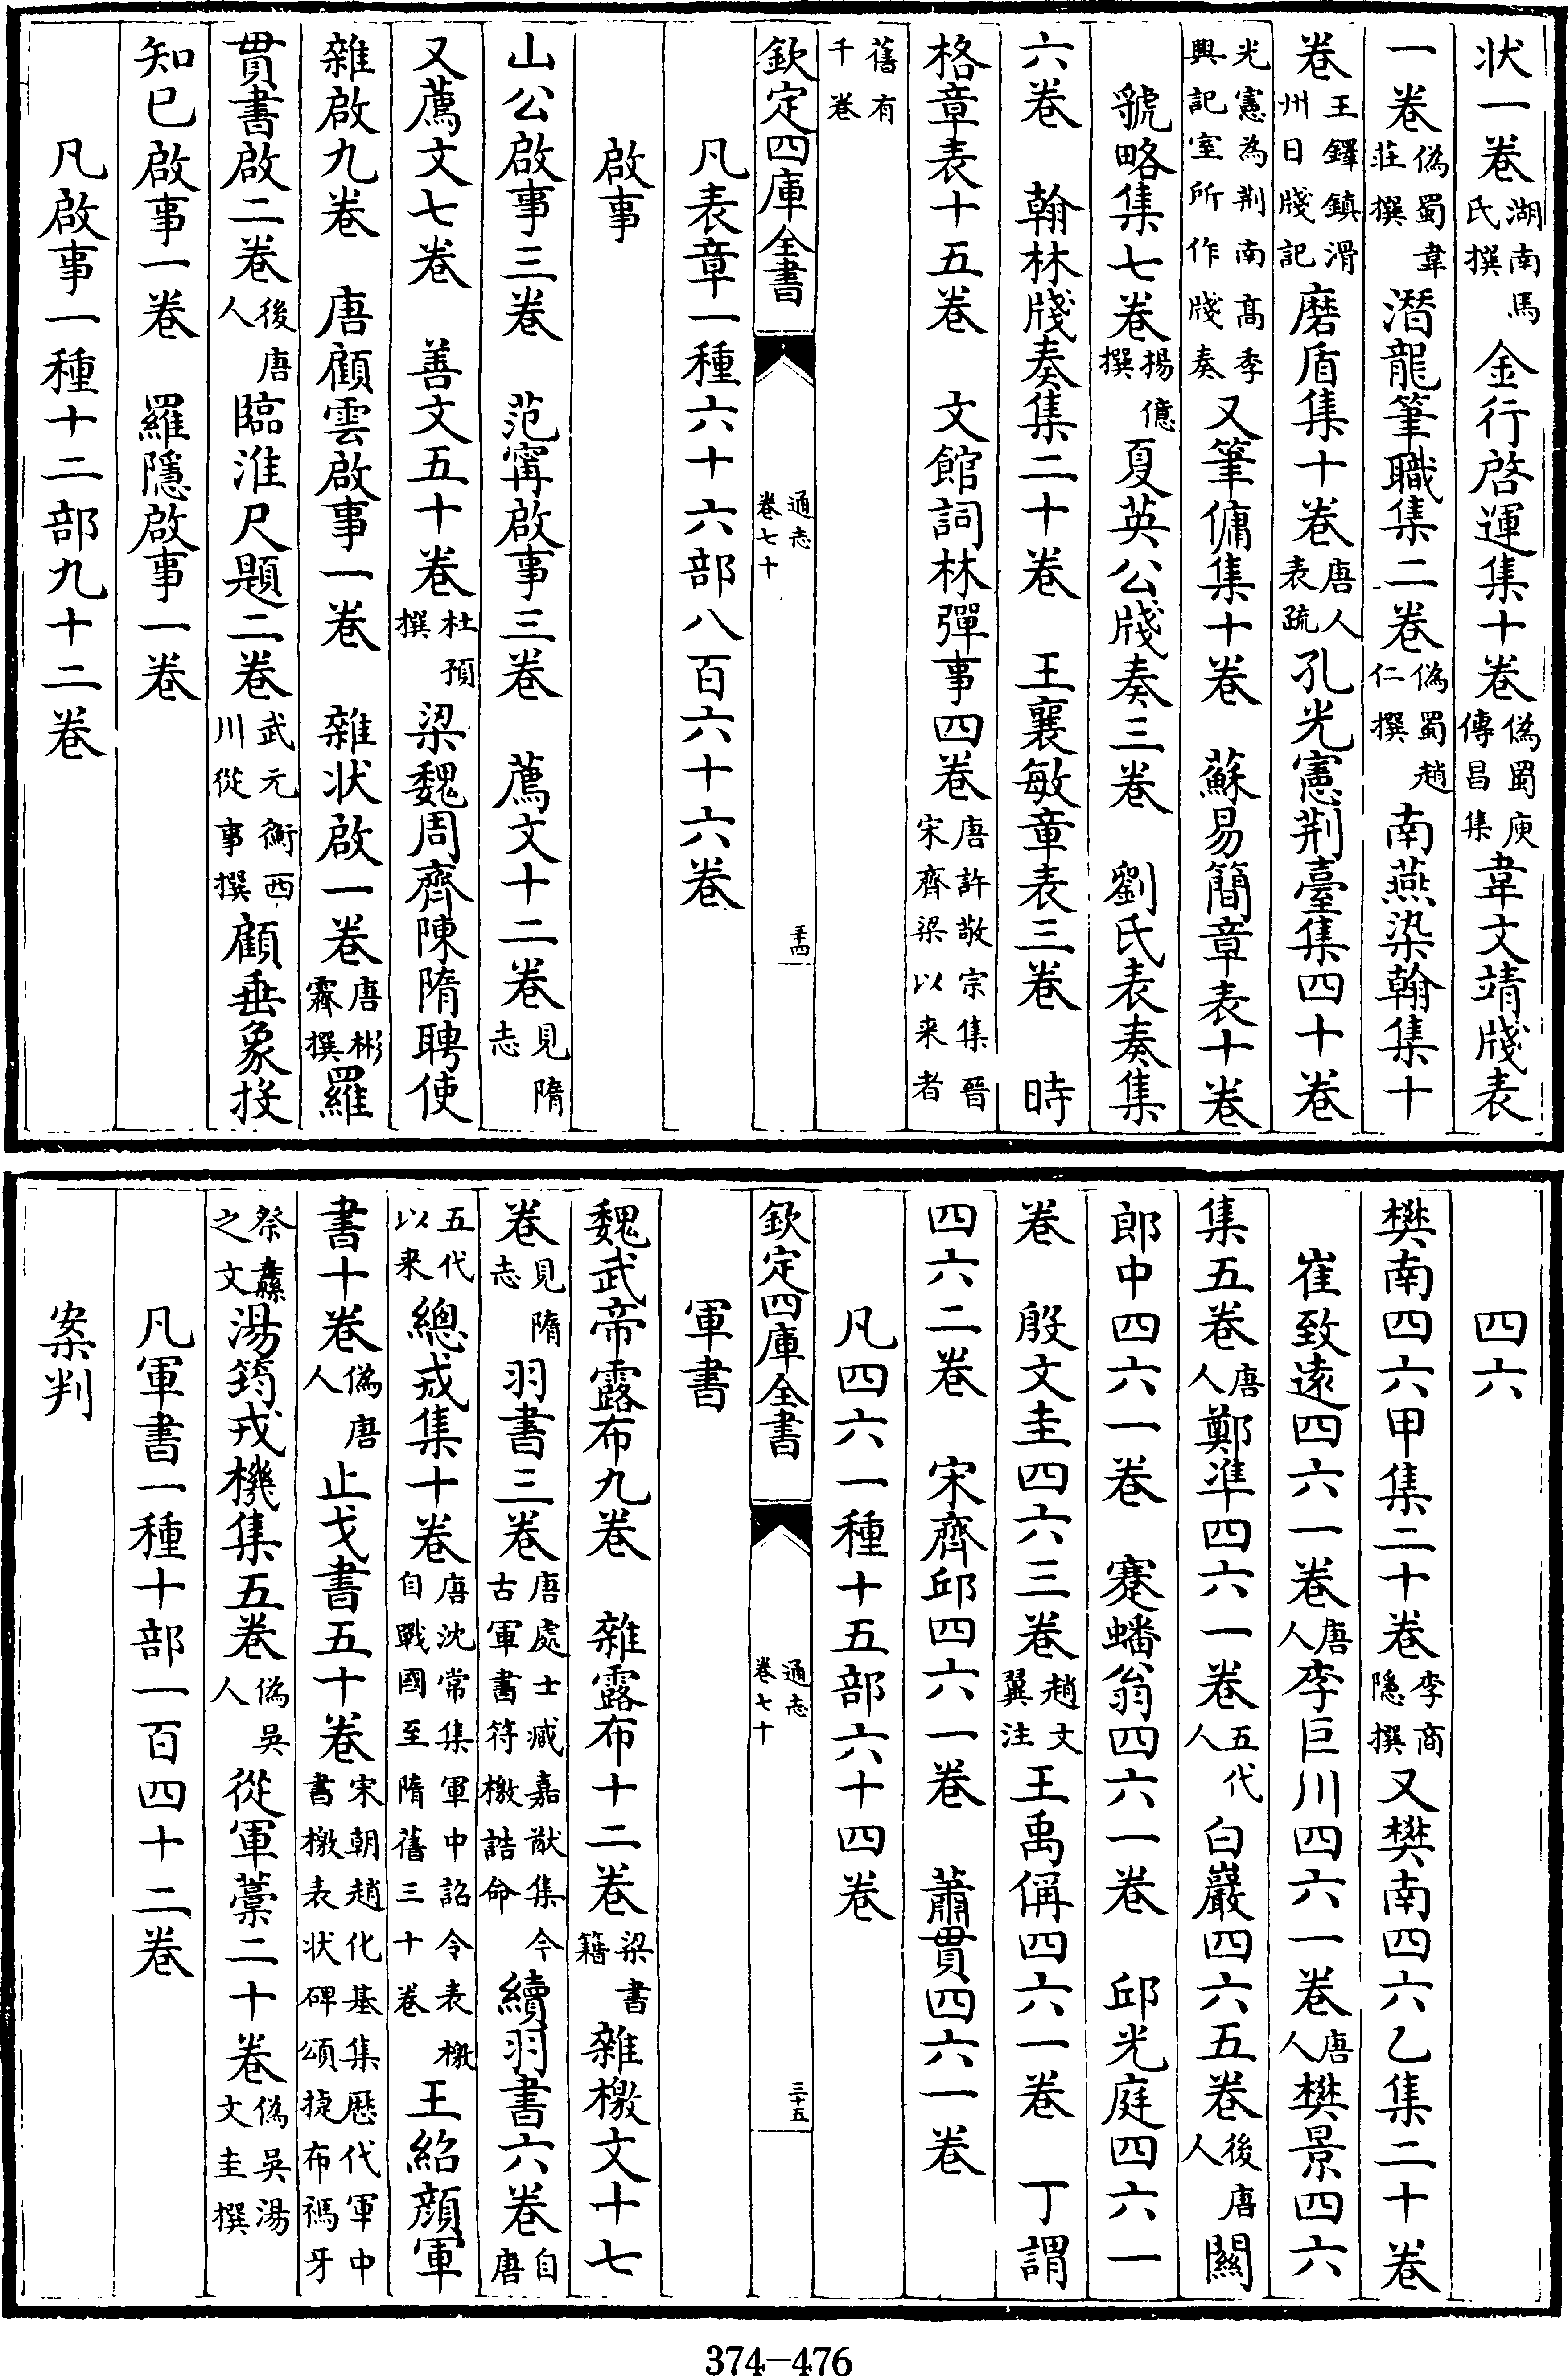 状一卷湖南馬氏撰金行啓運集十卷偽蜀庾傳昌集韋文靖牋表
一卷偽蜀韋莊撰潛龍筆職集二卷偽蜀趙仁撰南燕染翰集十
卷王鐸鎮滑州日牋記磨盾集十卷唐人表疏孔光憲荆臺集四十卷
光憲為荆南髙季興記室所作牋奏又筆傭集十卷 蘇易簡章表十卷
虢略集七卷揚億撰夏英公牋奏三卷 劉氏表奏集
六卷 翰林牋奏集二十卷 王襄敏章表三卷 時
格章表十五卷 文館詞林彈事四卷唐許敬宗集晉宋齊梁以来者
舊有千卷
欽定四庫全書 通志卷七十 三十四
凡表章一種六十六部八百六十六卷
啟事
山公啟事三卷 范甯啟事三卷 薦文十二卷見隋志
又薦文七卷 善文五十卷杜預撰梁魏周齊陳隋聘使
雜啟九卷 唐顧雲啟事一卷 雜状啟一卷唐彬霖撰羅
貫書啟二卷後唐人臨淮尺題二卷武元衡西川從事撰顧垂象投
知已啟事一卷 羅隱啟事一卷
凡啟事一種十二部九十二卷
四六
樊南四六甲集二十卷李商隱撰又樊南四六乙集二十卷
崔致遠四六一卷唐人李巨川四六一卷唐人樊景四六
集五卷唐人鄭準四六一卷五代人白巖四六五卷後唐人關
郎中四六一卷 蹇蟠翁四六一卷 邱光庭四六一
卷 殷文圭四六三卷趙文翼注王禹偁四六一卷 丁謂
四六二卷 宋齊邱四六一卷 蕭貫四六一卷
凡四六一種十五部六十四卷
欽定四庫全書 通志卷七十 三十五
軍書
魏武帝露布九卷 雜露布十二卷梁書籍雜檄文十七
卷見隋志羽書三卷唐處士臧嘉猷集今古軍書符檄誥命續羽書六卷自唐
五代以来總戎集十卷唐沈常集軍中詔令表檄自戰國至隋舊三十卷王紹顔軍
書十卷偽唐人止戈書五十卷宋朝趙化基集歷代軍中書檄表状碑頌捷布禡牙
祭纛之文湯筠戎機集五卷偽吳人從軍藁二十卷偽吳湯文圭撰
凡軍書一種十部一百四十二卷
案判
374-476